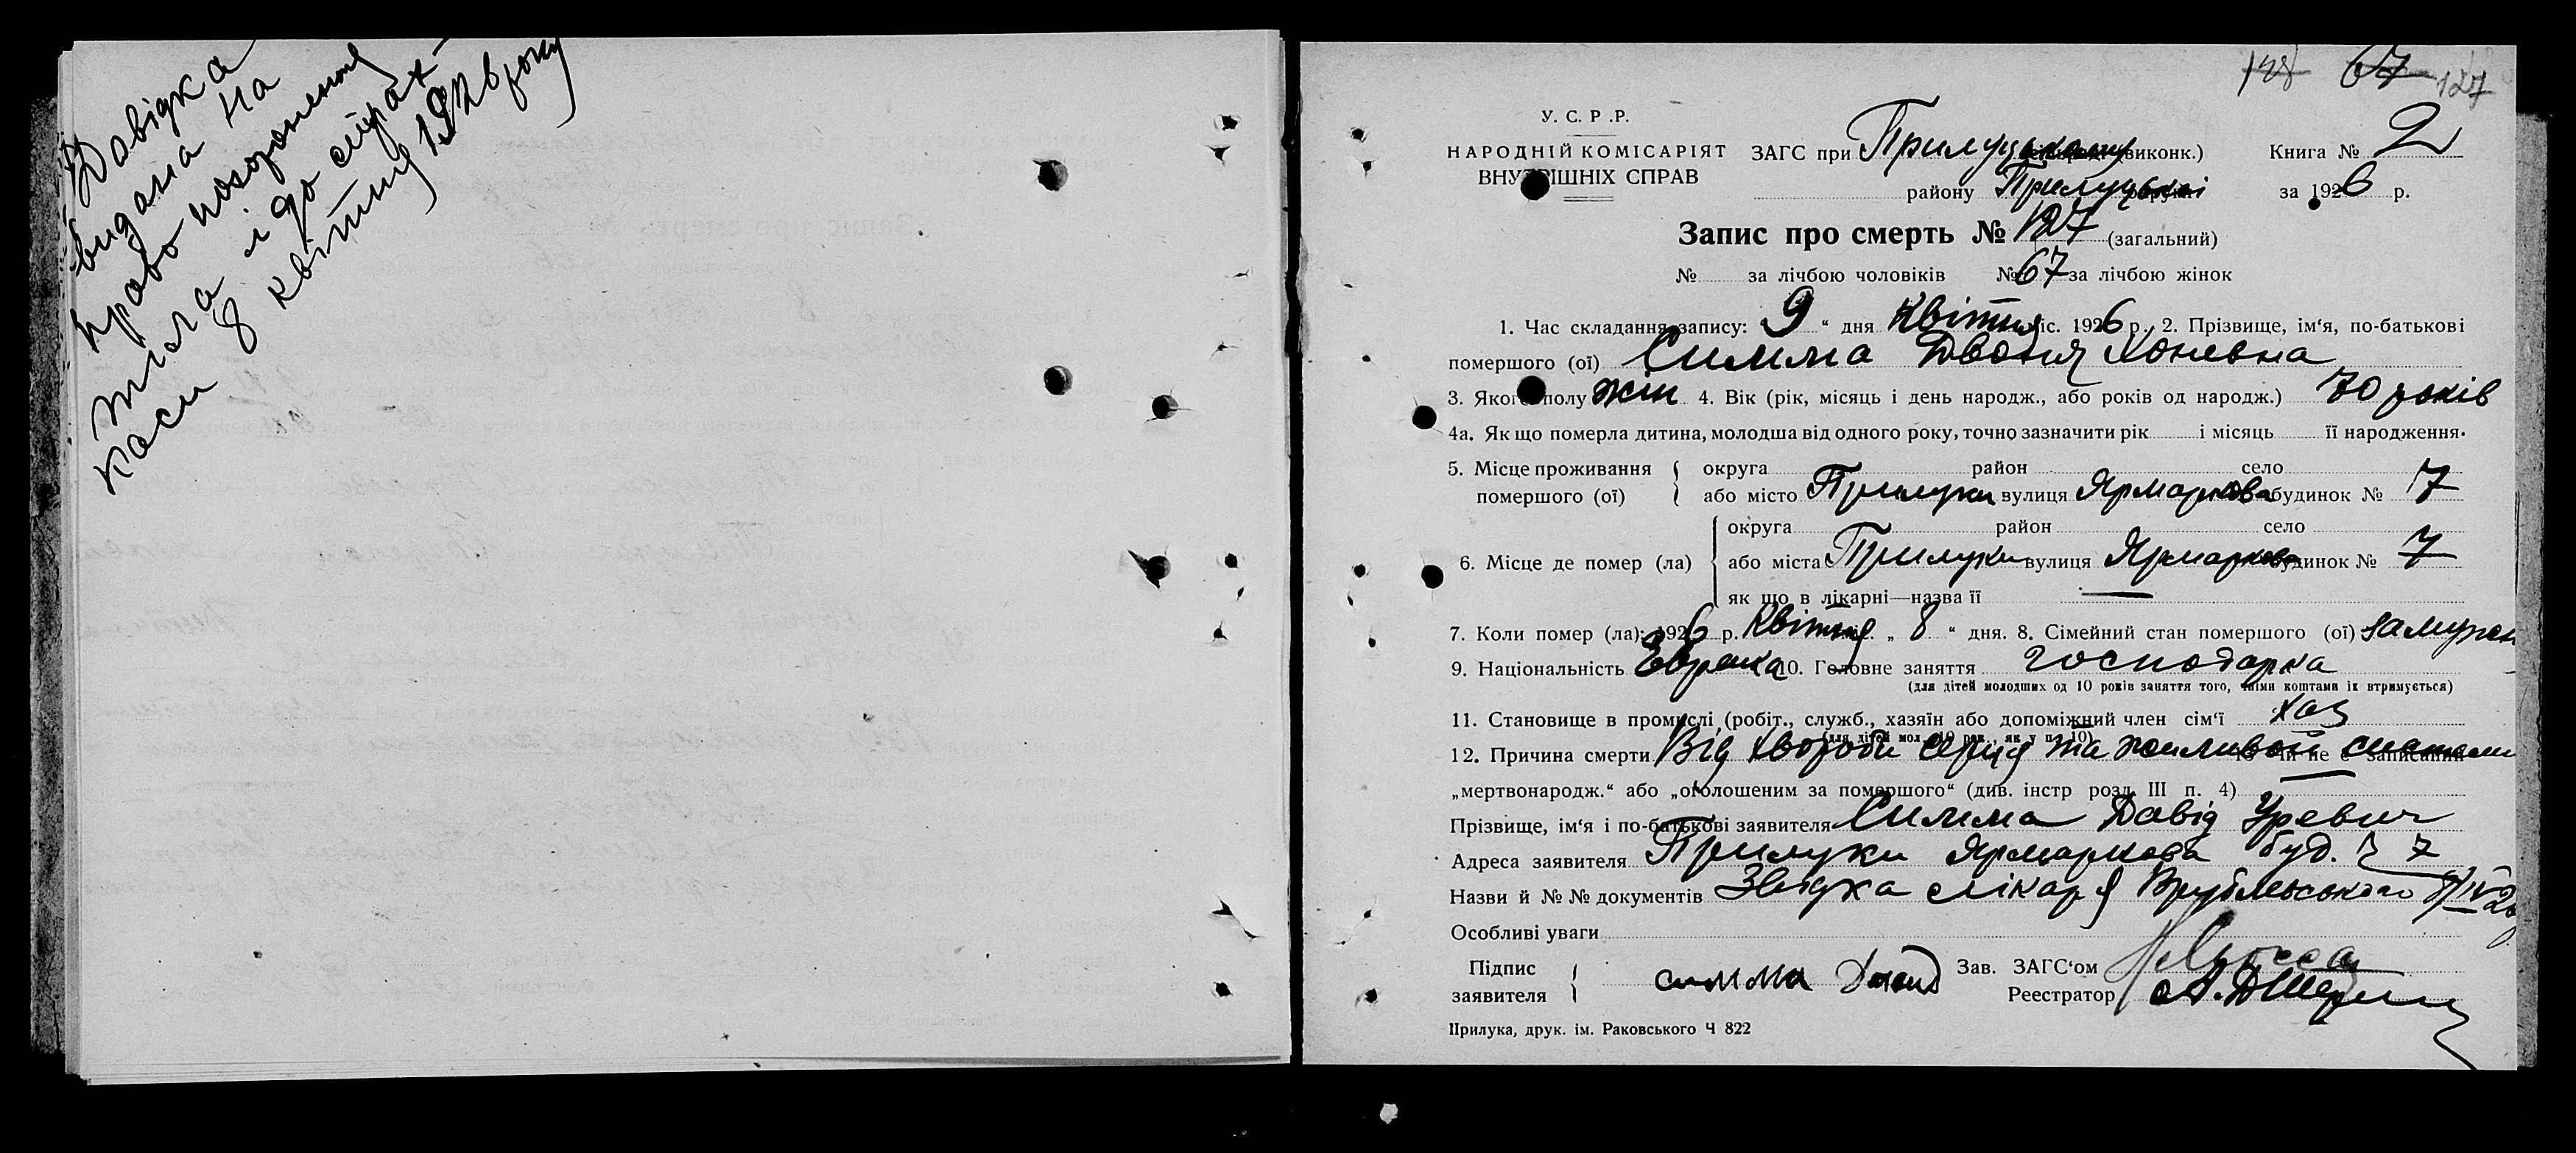 Довідка
видана на
право похоронення
тіла і до страх-
каси 8 квітня 1926 року
128 67 127
У. С. Р .Р.
НАРОДНІЙ КОМІСАРІЯТ ЗАГС при Прилуцькому виконк.) Книга № 2
ВНУТРІШНІХ СПРАВ району Прилуцької округи за 1926 р.
Запис про смерть № 127 (загальний)
№ за лічбою чоловіків № 67 за лічбою жінок
1. Час складання запису: 9 “ дня квітня міс. 1926 р. 2. Прізвище, ім‘я, по-батькові
помершого (ої) Симма Двойя Хоневна
3. Якого полу жін 4. Вік (рік, місяць і день народж., або років од народж.) 70 років
4а. Як що померла дитина, молодша від одного року, точно зазначити рік і місяць її народження.
5. Місце проживання округа район село
помершого (ої) або місто Прилуки вулиця Ярмаркова будинок № 7
округа район село
6. Місце де помер (ла) або міста Прилуки вулиця Ярмаркова будинок № 7
як що в лікарні—назва її —
7. Коли помер (ла): 1926 р. квітня „ 8 “ дня. 8. Сімейний стан помершого (ої) замужн
9. Національність Єврейка 10. Головне заняття господарка
(для дітей молодших од 10 років заняття того, чиїми коштами їх втримується)
11. Становище в промислі (робіт., служб., хазяїн або допоміжний член сім‘ї хаз
(для дітей мол. 10 рок., як у п. 10)
12. Причина смерти Від хвороби серця та 13 Чи не є записаний
„мертвонародж.“ або „оголошеним за помершого“ (див. інстр розд. III п. 4)
Прізвище, ім‘я і по-батькові заявителя Симма Давід Уревич
Адреса заявителя Прилуки Ярмаркова буд. 7
Назви й №№ документів Звідка лікаря Врублевського 8/IV 26
Особливі уваги
Підпис Зав. ЗАГС‘ом
заявителя симма Давид Реестратор
Прилука, друк. ім. Раковського Ч 822